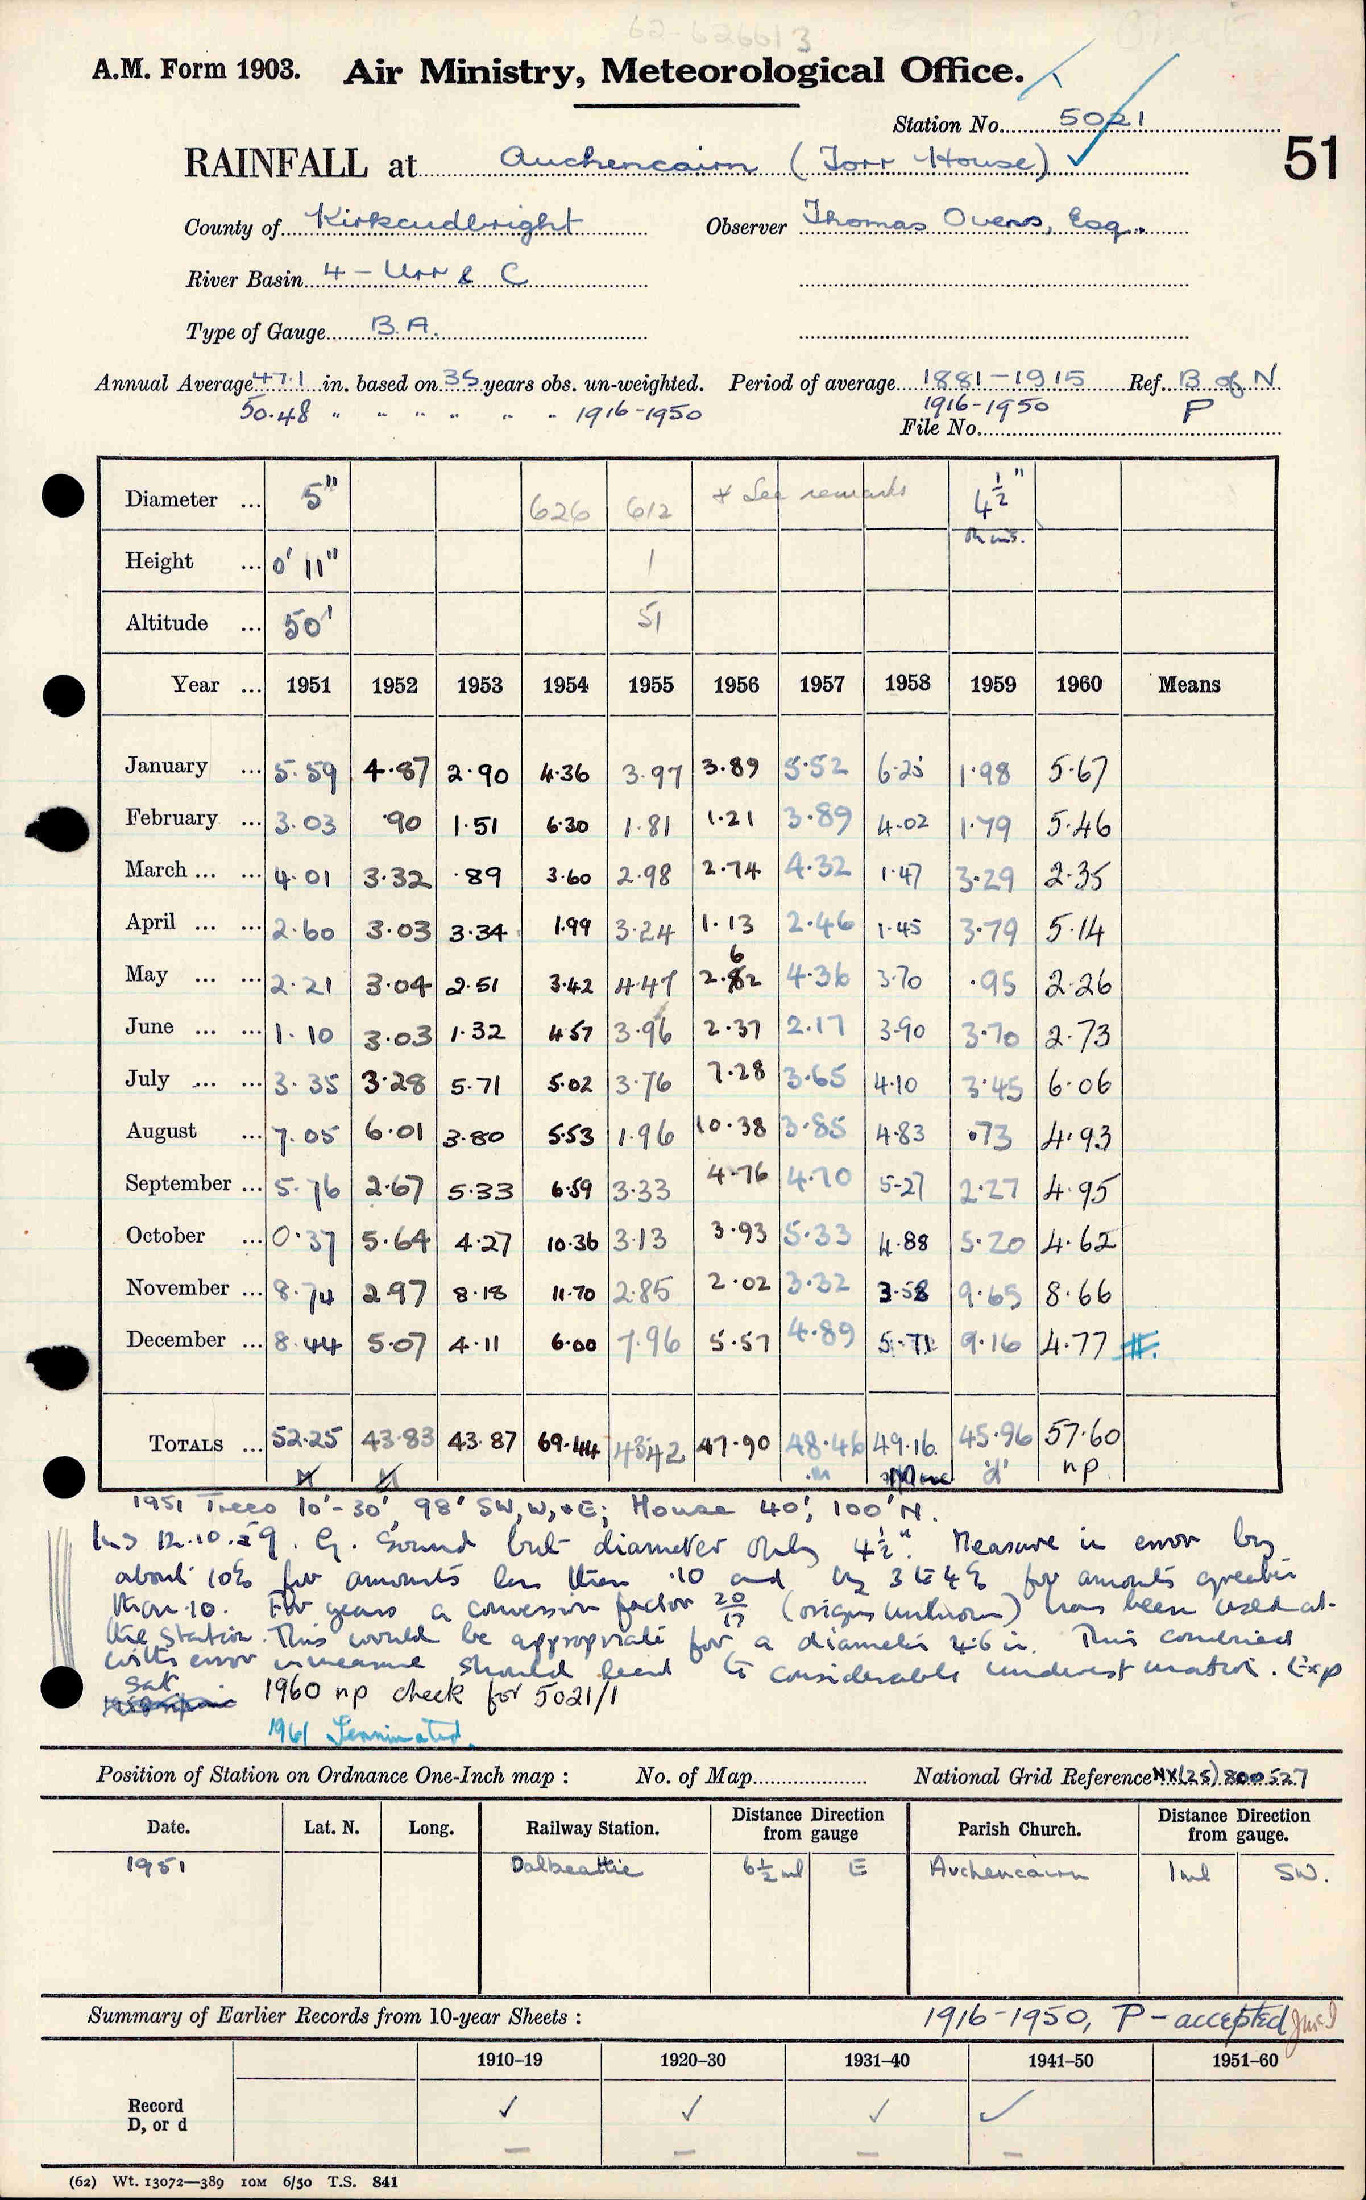 62-626613
A.M. Form 1903. Air Ministry, Meteorological Office.
Station No. 5021
RAINFALL at Auchencairn (Torr House) 51
County of Kirkcudbright Observer Thomas Ovens, Esq.
River Basin 4 - Urr & C
Type of Gauge B.A.
Annual Average 47.1 in. based on 35 years obs. un-weighted. Period of average 1881-1915 Ref. B of N
50.48 " " " " " " 1916-1950 1916-1950 P
File No.
Diameter ... 5" 626 612 * See remarks 4½"
Height ... 0' 11" 1
Altitude ... 50' 51
Year ... 1951 1952 1953 1954 1955 1956 1957 1958 1959 1960 Means
January ... 5.59 4.87 2.90 4.36 3.97 3.89 5.52 6.25 1.98 5.67
February ... 3.03 .90 1.51 6.30 1.81 1.21 3.89 4.02 1.79 5.46
March ... ... 4.01 3.32 .89 3.60 2.98 2.74 4.32 1.47 3.29 2.35
April ... ... 2.60 3.03 3.34 1.99 3.24 1.13 2.46 1.45 3.79 5.14
May ... ... 2.21 3.04 2.51 3.42 4.47 2.62 4.36 3.70 .95 2.26
June ... ... 1.10 3.03 1.32 4.57 3.96 2.37 2.17 3.90 3.70 2.73
July ... ... 3.35 3.28 5.71 5.02 3.76 7.28 3.65 4.10 3.45 6.06
August ... 7.05 6.01 3.80 5.53 1.96 10.38 3.85 4.83 .73 4.93
September ... 5.76 2.67 5.33 6.59 3.33 4.76 4.70 5.27 2.27 4.95
October ... 0.37 5.64 4.27 10.36 3.13 3.93 5.33 4.88 5.20 4.62
November ... 8.74 2.97 8.18 11.70 2.85 2.02 3.32 3.58 9.65 8.66
December ... 8.44 5.07 4.11 6.00 7.96 5.57 4.89 5.71 9.16 4.77 #.
TOTALS ... 52.25 43.83 43.87 69.44 43.42 47.90 48.46 49.16 45.96 57.60
M M m 'd' np
1951 Trees 10'-30', 98' SW, W, & E; House 40', 100' N.
12.10.59. G. Sound but diameter only 4½". Measure in error by
about 10% for amounts less than .10 and by 3 to 4% for amounts greater
than .10. For years a conversion factor 20/17 (origin unknown) has been used at
the station. This would be appropriate for a diameter 4.6 in. This combined
with error in measure should lead to considerable underestimation. Exp
Sat.
1960 np check for 5021/1
1961 Terminated.
Position of Station on Ordnance One-Inch map : No. of Map National Grid Reference NX(25)800527
Date. Lat. N. Long. Railway Station. Distance Direction from gauge Parish Church. Distance Direction from gauge.
1951 Dalbeattie 6½ ml E Auchencairn 1 ml SW.
Summary of Earlier Records from 10-year Sheets : 1916-1950, P - accepted
1910–19 1920–30 1931–40 1941–50 1951–60
Record ✓ ✓ ✓ ✓
D, or d – – – –
(62) Wt. 13072—389 10M 6/50 T.S. 841